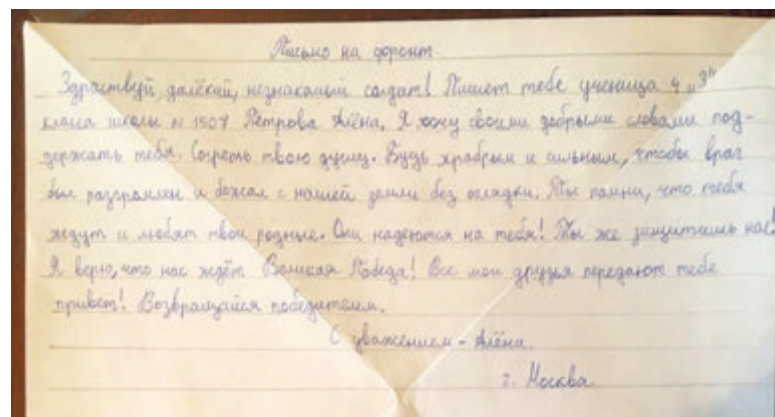 Письмо на фронт
Здравствуй, далёкий, незнакомый солдат! Пишет тебе ученица 4 „З"
класса школы № 1507 Петрова Алёна. Я хочу своими добрыми словами под-
держать тебя. Согреть твою душу. Будь храбрым и сильным, чтобы враг
был разгромлен и бежал с нашей земли без оглядки. Ты помни, что тебя
ждут и любят твои родные. Они надеются на тебя! Ты же защитишь нас!
Я верю, что нас ждёт Великая Победа! Все мои друзья передают тебе
привет! Возвращайся победителем.
С уважением - Алёна.
г. Москва